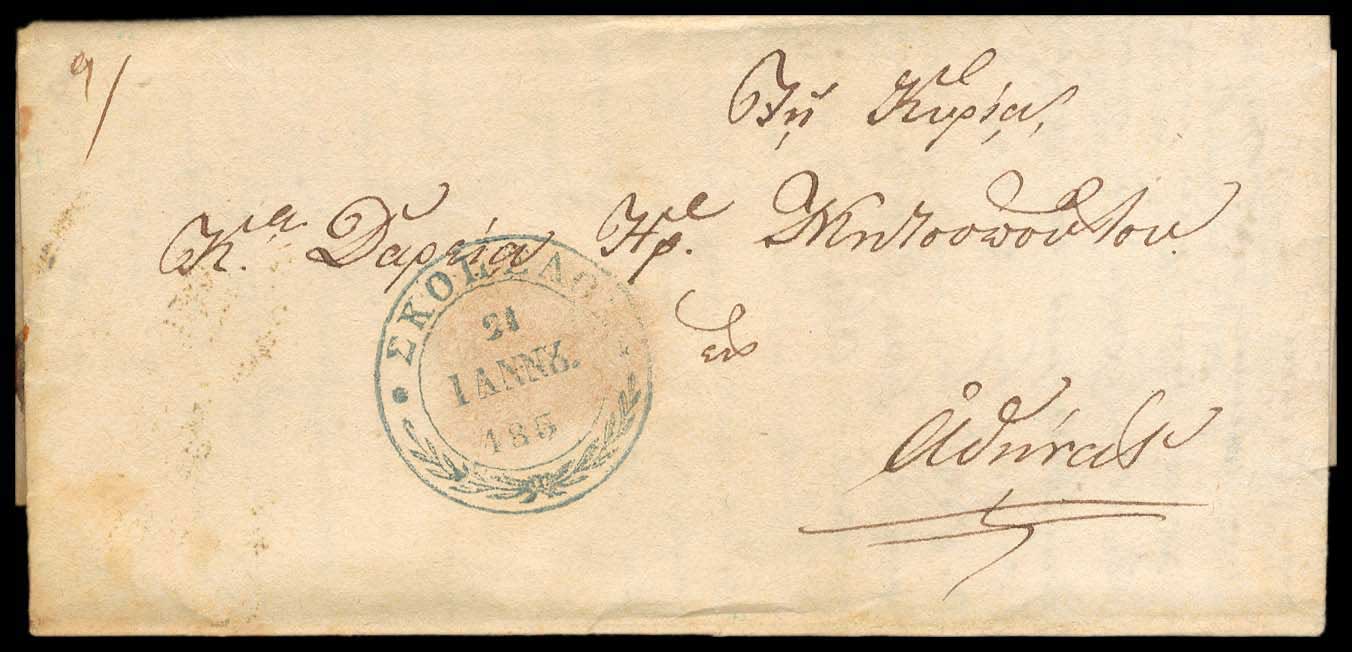 9/
Τῇ Κυρίᾳ,
Κ.ᾳ Μαρίᾳ Ηρ. Μητσοπούλου
εἰς
Ἀθήνας
ΣΚΟΠΕΛΟ
21
ΙΑΝΝȣ.
185